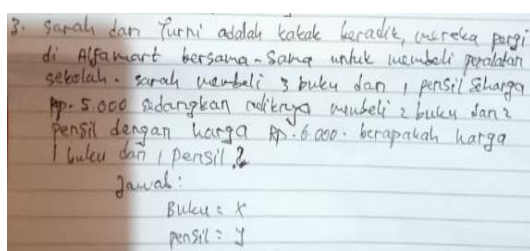 3. Sarah dan Yurni adalah kakak beradik, mereka pergi
di Alfamart bersama-sama untuk membeli peralatan
sekolah. Sarah membeli 3 buku dan 1 pensil seharga
Rp. 5.000 sedangkan adiknya membeli 2 buku dan 2
pensil dengan harga Rp. 6.000. berapakah harga
1 buku dan 1 pensil ?
Jawab:
Buku = x
pensil = y